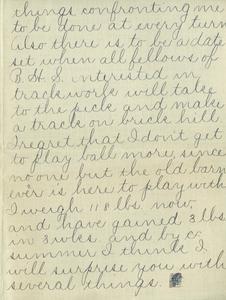 things confronting me
to be done at every turn
Also there is to be a date
set when all fellows of
B.H.S. interested in
track work will take
to the pick and make
a track on brick hill
I regret that I don't get
to play ball more, since
no one but the old barn
ever is here to play with
I weigh 118 lbs. now,
and have gained 3 lbs
in 3 wks. and by
summer I think I
will surprise you with
several things.